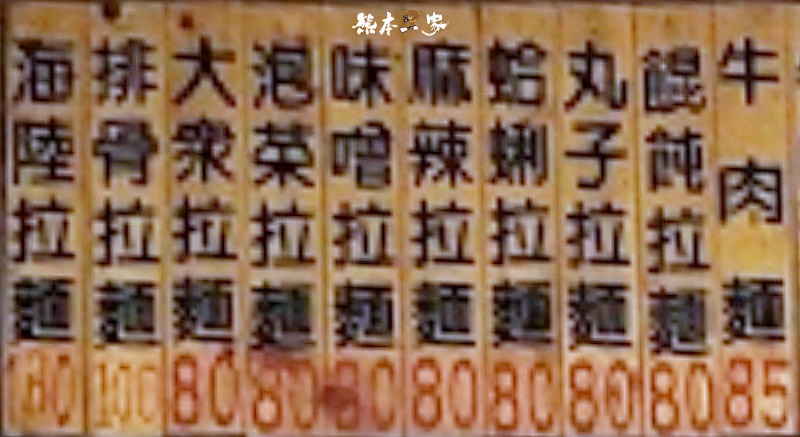 熊本一家
牛肉麵 85
餛飩拉麵 80
丸子拉麵 80
蛤蜊拉麵 80
麻辣拉麵 80
味噌拉麵 80
泡菜拉麵 80
大眾拉麵 80
排骨拉麵 100
海陸拉麵